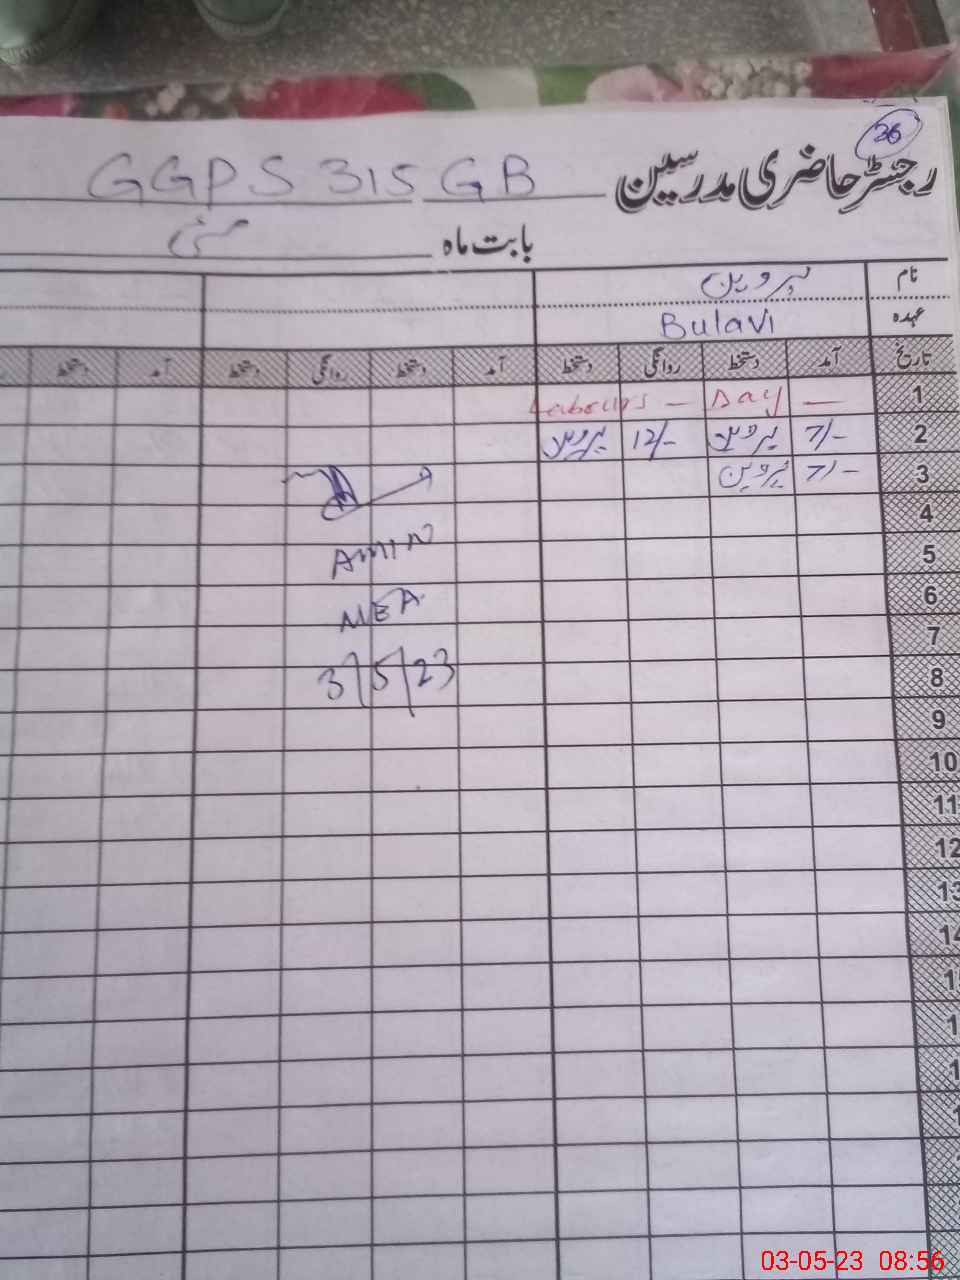 36
رجسٹر حاضری مدرسین GGPS 315 GB
بابت ماہ مئی
نام پروین
عہدہ Bulavi
تاریخ آمد دستخط روانگی دستخط آمد دستخط روانگی دستخط آمد دستخط
1 — Day — Labours
2 7/- پروین 12/- پروین
3 7/- پروین
4
AMIN
5
6
NEA
7
8
3/5/23
9
10
11
12
13
14
03-05-23 08:56